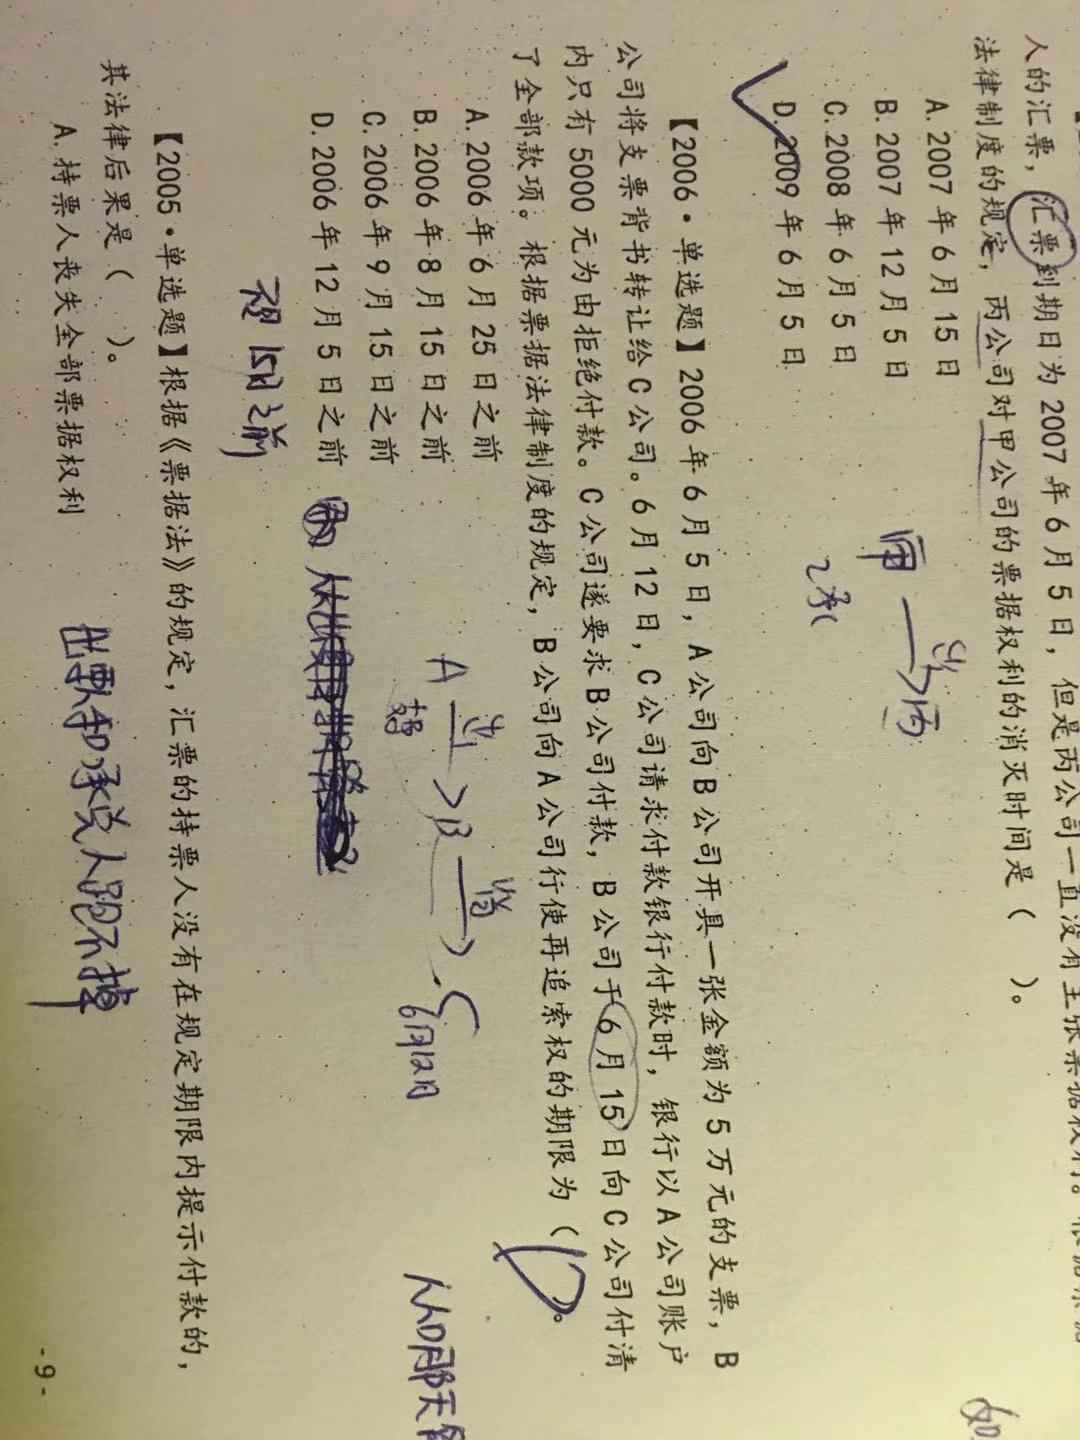 人的汇票，汇票到期日为 2007 年 6 月 5 日，但是丙公司一直没有主张票据权利。根据票据
法律制度的规定，丙公司对甲公司的票据权利的消灭时间是（ ）。
A. 2007 年 6 月 15 日
B. 2007 年 12 月 5 日
C. 2008 年 6 月 5 日
D. 2009 年 6 月 5 日
甲 出 丙
乙承
【2006·单选题】2006 年 6 月 5 日，A 公司向 B 公司开具一张金额为 5 万元的支票，B
公司将支票背书转让给 C 公司。6 月 12 日，C 公司请求付款银行付款时，银行以 A 公司账户
内只有 5000 元为由拒绝付款。C 公司遂要求 B 公司付款，B 公司于 6 月 15 日向 C 公司付清
了全部款项。根据票据法律制度的规定，B 公司向 A 公司行使再追索权的期限为（ ）。
D
A. 2006 年 6 月 25 日之前
B. 2006 年 8 月 15 日之前
C. 2006 年 9 月 15 日之前
D. 2006 年 12 月 5 日之前
A 出 B 背 C
6月12日
【2005·单选题】根据《票据法》的规定，汇票的持票人没有在规定期限内提示付款的，
其法律后果是（ ）。
A. 持票人丧失全部票据权利
出票和承兑人跑不掉
- 9 -